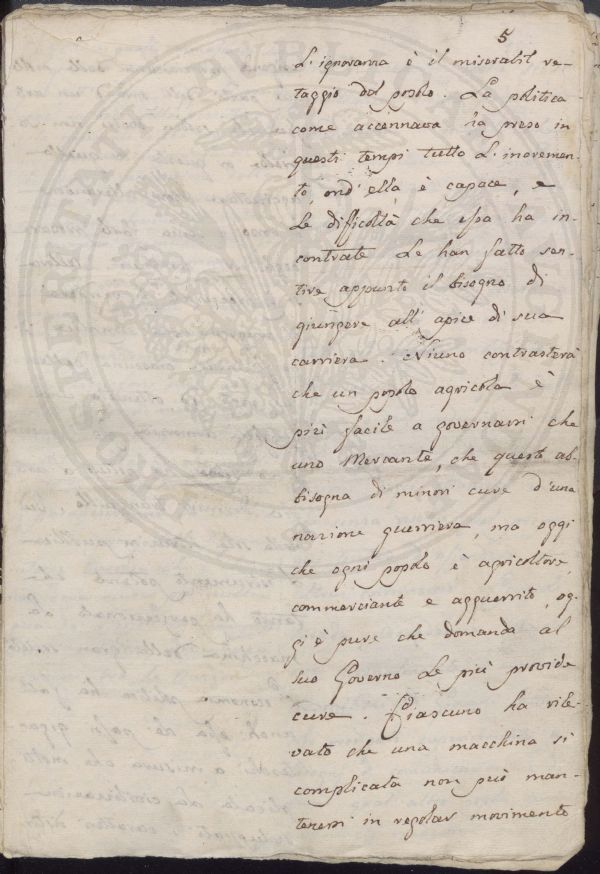 5
L'ignoranza è il miserabil re-
taggio del popolo. La politica
come accennava ha preso in
questi tempi tutto l'incremen-
to, ond'ella è capace, e
le difficoltà che essa ha in-
contrate le han fatto sen-
tire appunto il bisogno di
giungere all'apice di sua
carriera. Niuno contrasterà
che un popolo agricola è
più facile a governarsi che
uno Mercante, che questi ab-
bisogna di minori cure d'una
nazione guerriera, ma oggi
che ogni popolo è agricoltore,
commerciante e agguerrito, og-
gi è pure che domanda al
suo Governo le più provide
cure. Ciascuno ha rile-
vato che una macchina sì
complicata non può man-
tenersi in regolar movimento